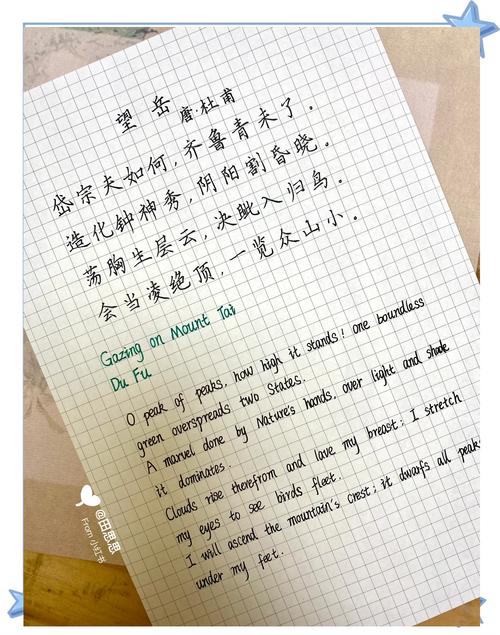 望岳
唐·杜甫
岱宗夫如何,齐鲁青未了。
造化钟神秀,阴阳割昏晓。
荡胸生层云,决眦入归鸟。
会当凌绝顶,一览众山小。
Gazing on Mount Tai
Du Fu
O peak of peaks, how high it stands! one boundless
green overspreads two States.
A marvel done by Nature's hands, over light and shade
it dominates.
Clouds rise therefrom and lave my breast; I stretch
my eyes to see birds fleet.
I will ascend the mountain's crest; it dwarfs all peak
under my feet.
@田思思
From 小红书